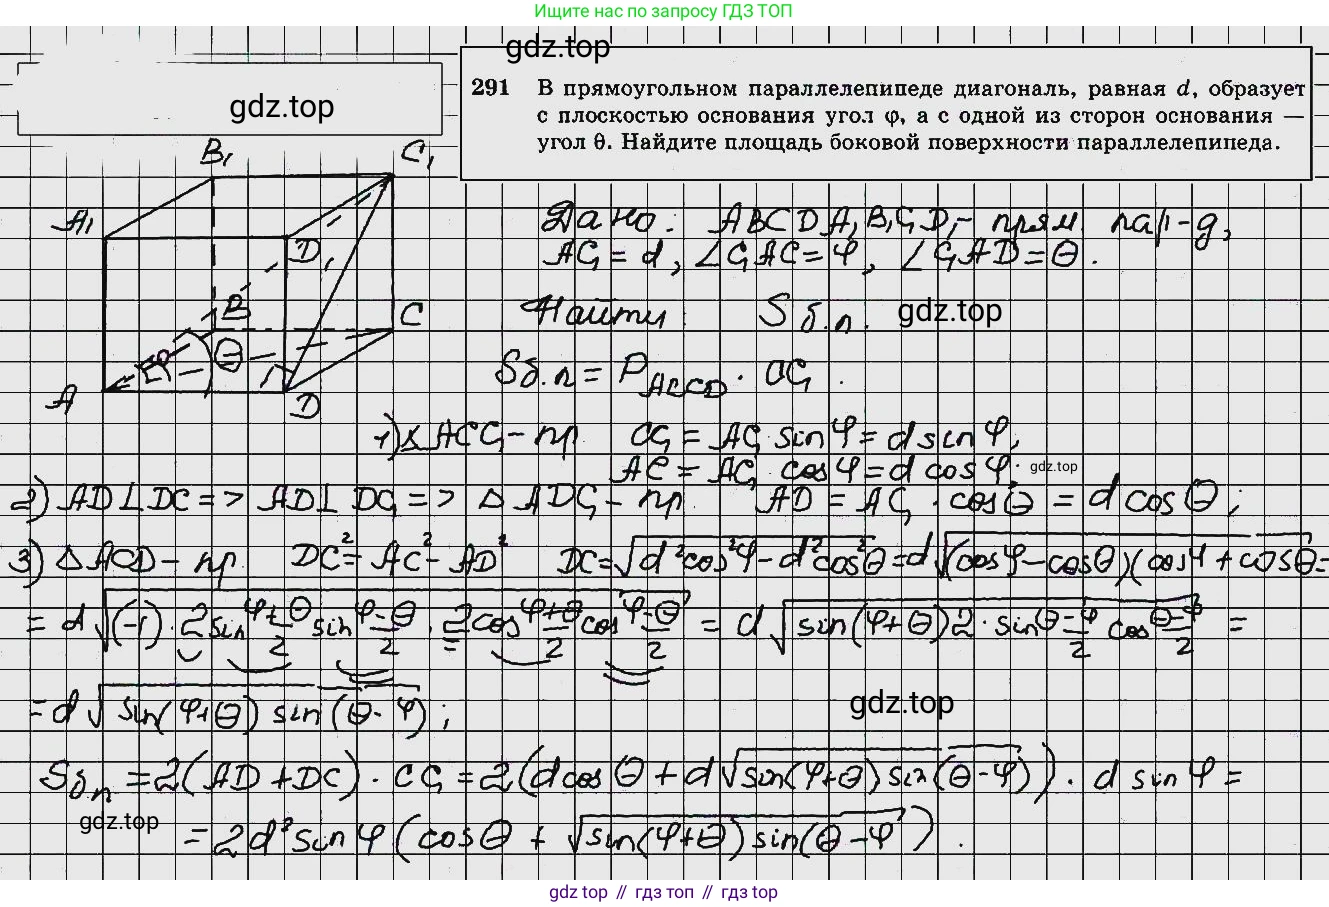 Ищите нас по запросу ГДЗ ТОП
gdz.top
gdz.top
291 В прямоугольном параллелепипеде диагональ, равная d, образует
с плоскостью основания угол φ, а с одной из сторон основания —
угол θ. Найдите площадь боковой поверхности параллелепипеда.
B₁ C₁
A₁ D₁
B C
φ θ
A D
Дано: ABCDA₁B₁C₁D₁ - прям. пар-д,
AC₁ = d, ∠C₁AC = φ, ∠C₁AD = θ.
Найти Sб.п.
gdz.top
Sб.п = P_ABCD · CC₁.
1) △ACC₁ - пр CC₁ = AC₁ sin φ = d sin φ,
AC = AC₁ cos φ = d cos φ.
gdz.top
2) AD⊥DC => AD⊥DC₁ => △ADC₁ - пр. AD = AC₁ · cos θ = d cos θ;
3) △ACD - пр. DC² = AC² - AD² DC = √(d²cos²φ - d²cos²θ) = d√((cosφ - cosθ)(cosφ + cosθ)) =
= d√((-1) · 2 sin (φ+θ)/2 sin (φ-θ)/2 · 2 cos (φ+θ)/2 cos (φ-θ)/2) = d√(sin(φ+θ) 2 · sin (θ-φ)/2 cos (θ-φ)/2) =
= d√(sin(φ+θ) sin(θ-φ));
gdz.top
Sб.п = 2(AD + DC) · CC₁ = 2(d cos θ + d√(sin(φ+θ) sin(θ-φ))) · d sin φ =
gdz.top
= 2d² sin φ (cos θ + √(sin(φ+θ) sin(θ-φ))).
gdz top // гдз топ // гдз top